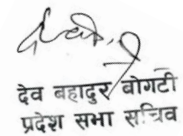 देव बहादुर बोगटी
प्रदेश सभा सचिव